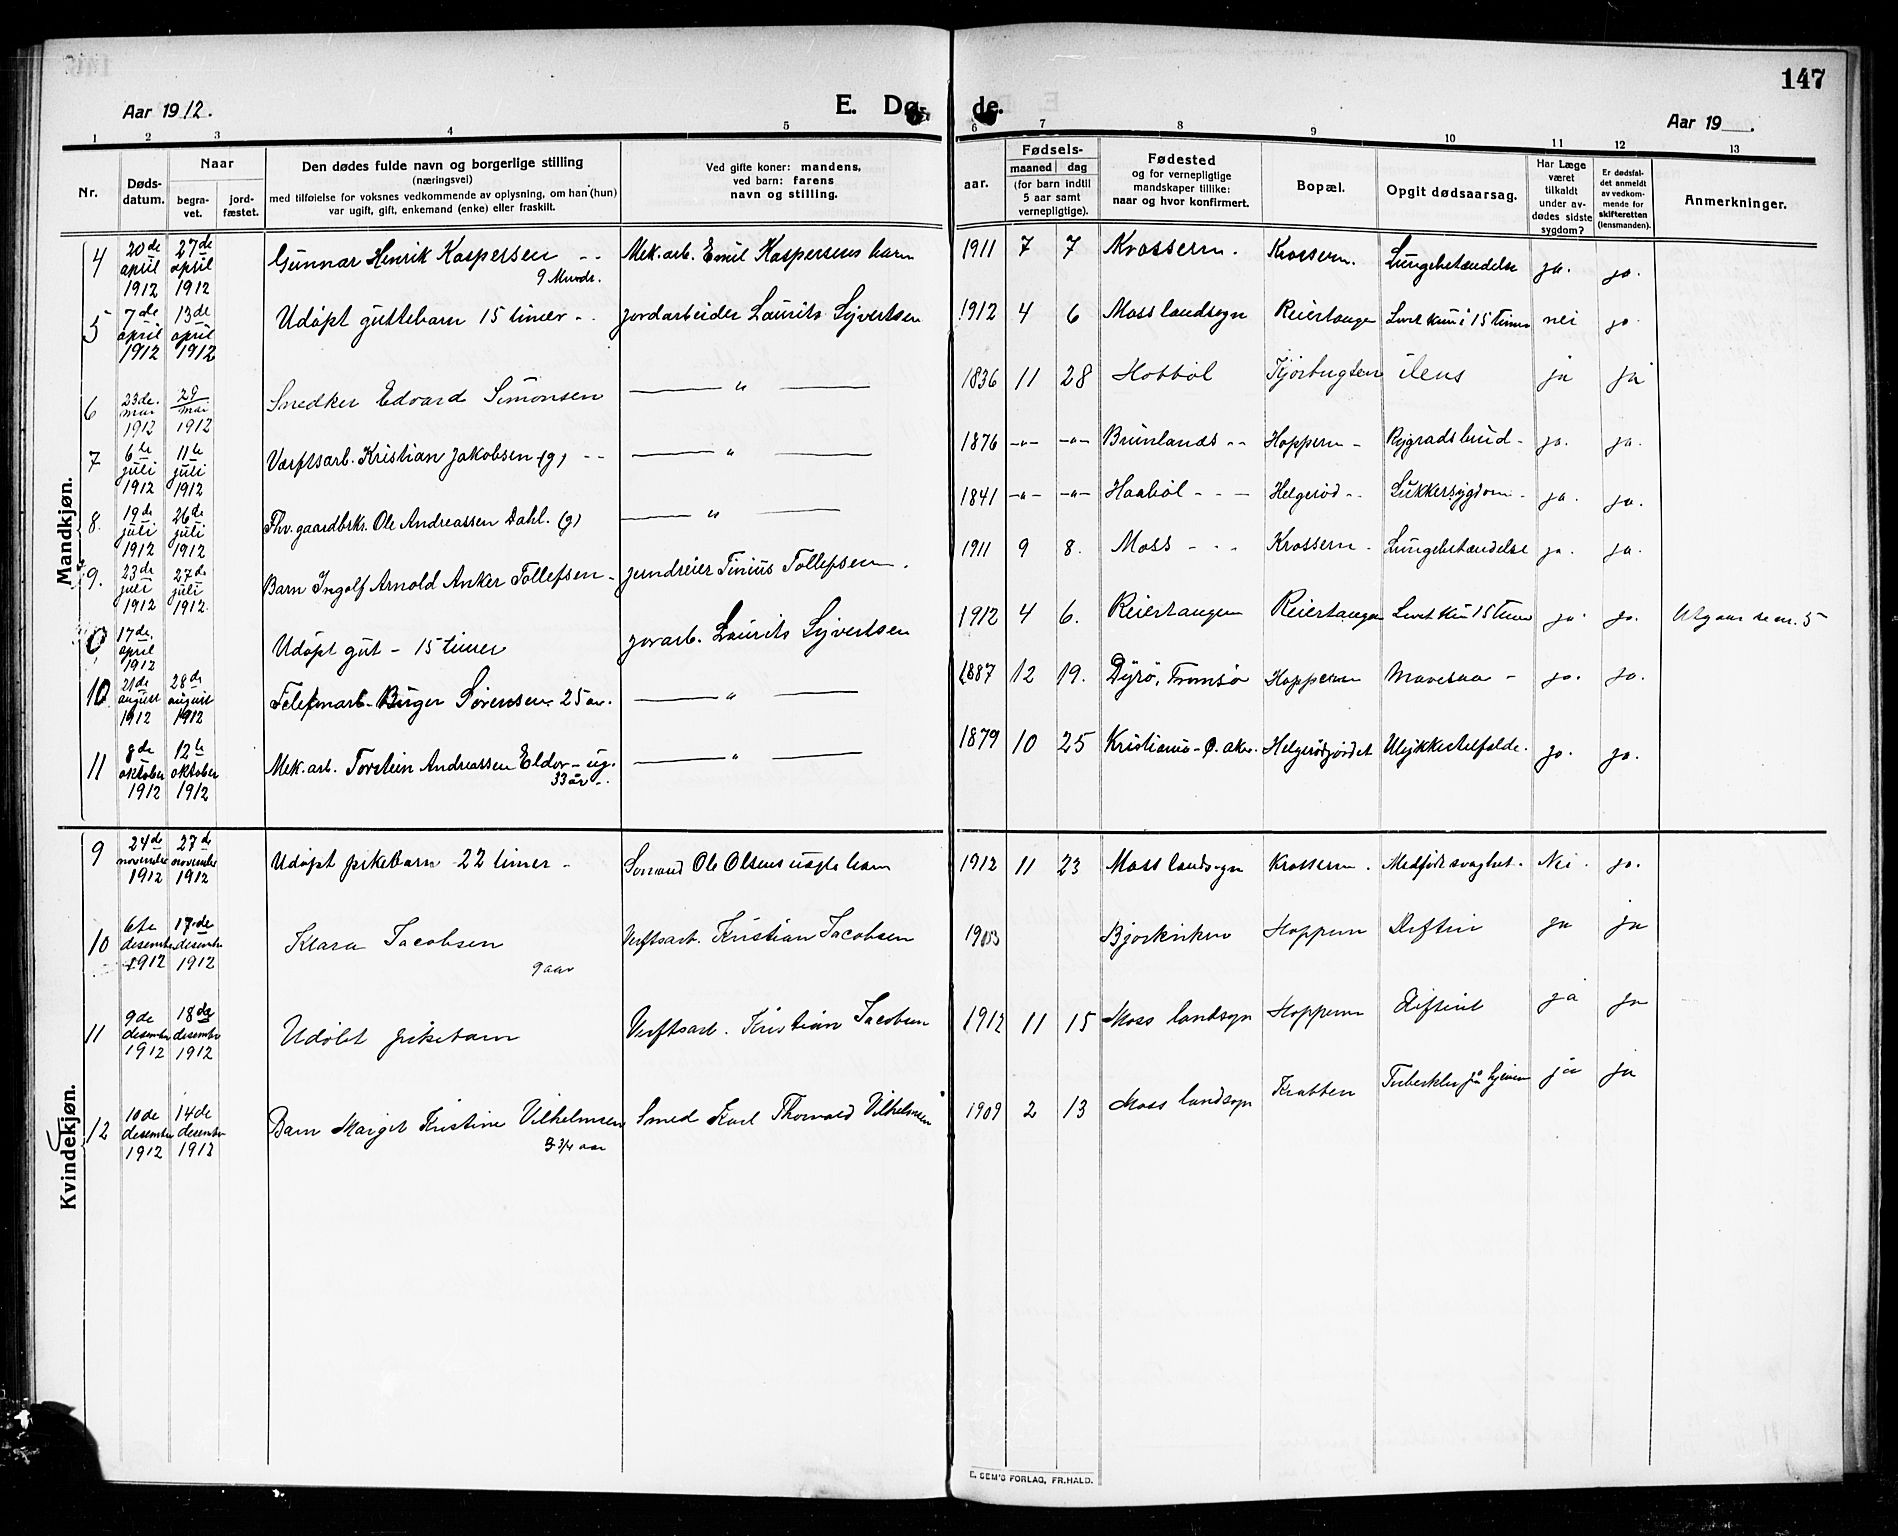 147
Aar 1912.
E. Dø de.
Aar 19 .
1 2 3 4 5 6 7 8 9 10 11 12 13
Nr. Døds-datum. Naar begra-vet. jord-fæstet. Den dødes fulde navn og borgerlige stilling (næringsvei) med tilføielse for voksnes vedkommende av oplysning, om han (hun) var ugift, gift, enkemand (enke) eller fraskilt. Ved gifte koner: mandens, ved barn: farens navn og stilling. aar. Fødsels- maaned dag (for barn indtil 5 aar samt vernepligtige). Fødested og for vernepligtige mandskaper tillike: naar og hvor konfirmert. Bopæl. Opgit dødsaarsag. Har Læge været tilkaldt under av-dødes sidste sygdom? Er dødsfal-det anmeldt av vedkom-mende for skifteretten (lensmanden). Anmerkninger.
Mandkjøn.
4 20de april 1912 27de april 1912 Gunnar Henrik Kaspersen - - 9 Mnndr. Mek. arb. Emil Kaspersens barn 1911 7 7 Krossern. Krossern. Lungebetændelse ja. ja.
5 7de april 1912 13de april 1912 Udøpt guttebarn 15 timer - - jordarbeider Laurits Syvertsen 1912 4 6 Moss landsogn Reiertangen Levet kun i 15 timer nei ja
6 23de mai 1912 29 mai 1912 Snedker Edvard Simonsen — " — 1836 11 28 Hobbøl ilens ja ja
7 6te juli 1912 11te juli 1912 Værftsarb. Kristian Jakobsen (g) - - — " — 1876 -"- -"- Brunlanes - - Hoppern - Rygradsbrud - ja. ja.
8. 19de juli 1912 26de juli 1912 Fhv. gaardbrkr. Ole Andreassen Dahl. (g) — " — 1841 -"- -"- Haabøl - - - Helgerød - - Sukkersygdom - ja. ja.
9. 23de juli 1912 27de juli 1912. Barn Ingolf Arnold Anker Tollefsen - Tinius Tollefsen. 1911 9 8. Moss - - - Krossern - Lungebetændelse ja. ja.
0 17de april 1912 Udøpt gut - 15 timer jorarb. Laurits Syvertsen 1912 4 6. Reiertangen Reiertangen Levet kun 15 timer ja. ja. Utgaar se nr. 5
10 21de august 1912 28de august 1912 Telefonarb. Birger Sørensen 25 aar. — " — 1887 12 19. Dyrø, Tromsø Hoppern Mavesaar - ja. ja.
11 8de oktober 1912 12te oktober 1912 Mek. arb. Torstein Andreassen Eldor - ug. 33 år - . — " — 1879 10 25 Kristiania - Ø. aker. Helgerødgjordet Ulykkestilfælde. ja. ja.
Kvindekjøn.
9 24de november 1912 27de november 1912 Udøpt pikebarn 22 timer - Sømand Ole Olsens uegte barn 1912 11 23 Moss landsogn Krossern. Medfødt svaghet. Nei. ja.
10 6te desember 1912 17de desember 1912 Klara Jacobsen 9 aar Verftsarb. Kristian Jacobsen Hoppern ja ja
11 9de desember 1912 18de desember 1912 Udøbt pikebarn Verftsarb. Kristian Jacobsen 1912 11 15 Moss landsogn Hoppern ja ja
12 10de desember 1912 14de desember 1912 Barn Margit Kristine Vilhelmsen 3 3/4 aar Smed Karl Thorvald Vilhelmsen 1909 2 13 Moss landsogn Krabben ja ja
E. SEM'S FORLAG, FR.HALD.